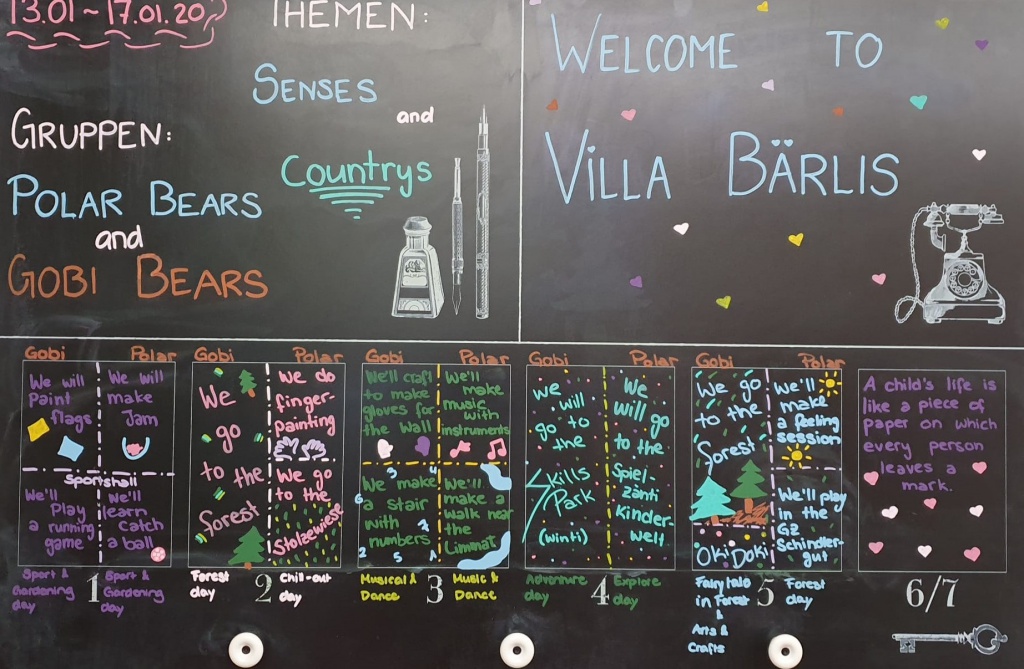 13.01 ~ 17.01.20
THEMEN:
SENSES
and
Countrys
GRUPPEN:
POLAR BEARS
and
GOBI BEARS
WELCOME TO
VILLA BÄRLIS
Gobi
Polar
We will
paint
flags
We will
make
Jam
Sportshall
We'll
Play
a running
game
We'll
learn
catch
a ball
Sport &
Gardening
day
1
Sport &
Gardening
day
Gobi
Polar
We
go
to the
forest
We do
finger-
painting
We go
to the
Stolzewiese
Forest
day
2
Chill-out
day
Gobi
Polar
We'll craft
to make
gloves for
the wall
We'll
make
music
with
instruments
We make
a stair
with
numbers
3
4
6
7
2
5
1
We'll
make a
walk near
the
Limmat
Musical &
Dance
3
Music &
Dance
Gobi
Polar
We
will
go to
the
Skills
Park
(Winti)
We
will go
to the
Spiel-
zänti
Kinder-
welt
Adventure
day
4
Explore
day
Gobi
Polar
We go
to the
forest
Oki Doki
We'll
make
a feeling
session
We'll play
in the
GZ
Schindler-
gut
Fairytale
in Forest
&
Arts &
Crafts
5
Forest
day
A child's life is
like a piece of
paper on which
every person
leaves a
mark.
6/7